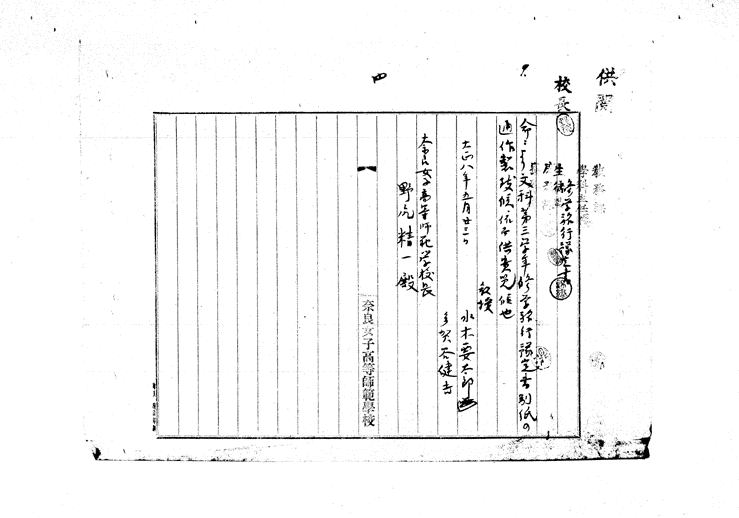 供閲
校長
教務課
学科主任
生徒課
修学旅行豫定書
命ニより文科第三学年修学旅行豫定書別紙の
通作製致候依テ供貴覧候也
大正八年五月廿三日
教授
水木要太郎
多賀谷健吉
奈良女子高等師範学校長
野尻精一殿
奈良女子高等師範學校
四